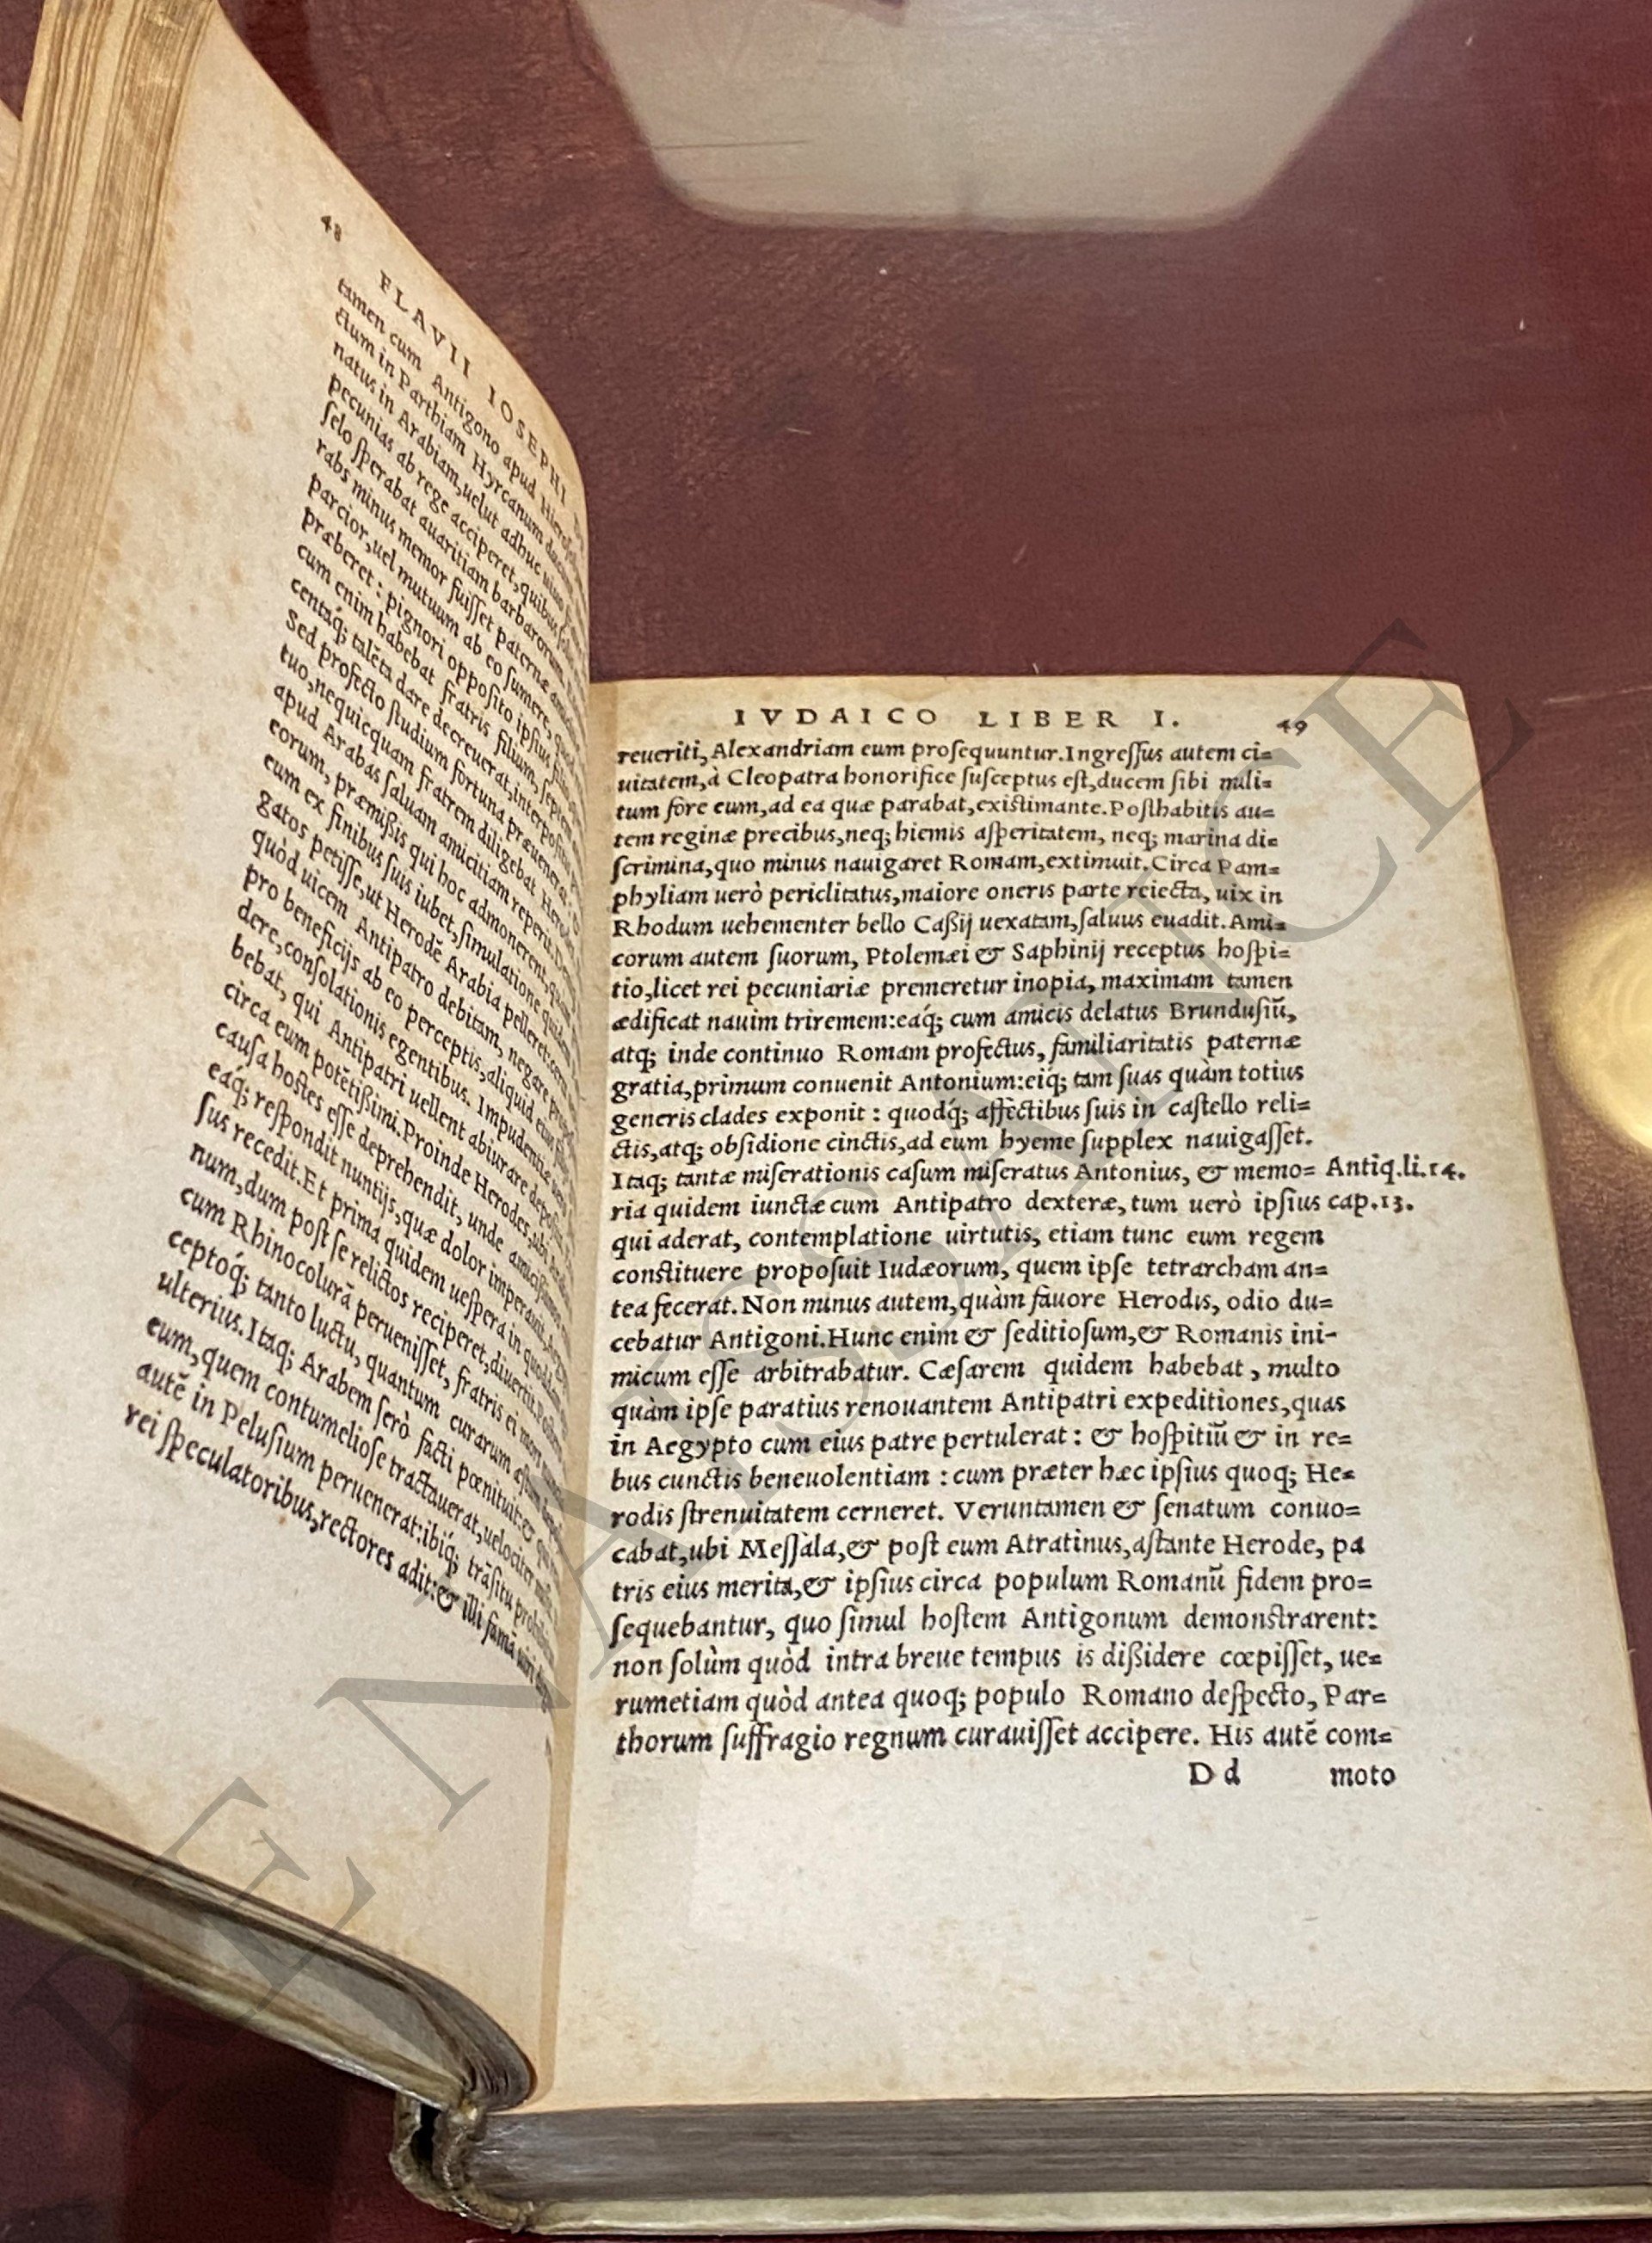 48
FLAVII IOSEPHI
tamen cum Antigono apud
ctum in Parthiam Hyrcanum
natus in Arabiam, uelut adhuc uiuo
pecunias ab rege acciperet, quibus
ſelo ſperabat auaritiam barbarorum
rabs minus memor fuiſſet paternæ
parcior, uel mutuum ab eo ſumere,
præberet: pignori oppoſito ipſius
cum enim habebat fratris filium, ſeptem
centáq; talēta dare decreuerat, interpoſitis
Sed profecto ſtudium fortuna præuenerat:
tuo, nequicquam fratrem diligebat
apud Arabas ſaluam amicitiam reperit.
eorum, præmißis qui hoc admonerent,
eum ex finibus ſuis iubet, ſimulatione quidem
gatos petiſſe, ut Herodē Arabia pelleret:
quòd uicem Antipatro debitam, negare
pro beneficijs ab eo perceptis, aliquid
dere, conſolationis egentibus. Impudentiæ uero
bebat, qui Antipatri uellent abiurare
circa eum potētißimi. Proinde Herodes, ubi
cauſa hoſtes eſſe deprehendit, unde amicißimos
eaq́; reſpondit nuntijs, quæ dolor imperauit,
ſus recedit. Et prima quidem ueſpera in quodam
num, dum poſt ſe relictos reciperet, diuertit.
cum Rhinocolurā perueniſſet, fratris ei mors
ceptoq́; tanto luctu, quantum curarum
ulterius. Itaq; Arabem ſerò facti pœnituit: & qui
eum, quem contumelioſe tractauerat, uelociter
autē in Peluſium peruenerat: ibiq́; trāſitu
rei ſpeculatoribus, rectores adit: & illi famā uiri
IVDAICO LIBER I. 49
reueriti, Alexandriam eum proſequuntur. Ingreſſus autem ci=
uitatem, à Cleopatra honorifice ſuſceptus eſt, ducem ſibi mili=
tum fore eum, ad ea quæ parabat, exiſtimante. Poſthabitis au=
tem reginæ precibus, neq; hiemis aſperitatem, neq; marina di=
ſcrimina, quo minus nauigaret Romam, extimuit. Circa Pam=
phyliam uerò periclitatus, maiore oneris parte reiecta, uix in
Rhodum uehementer bello Caßij uexatam, ſaluus euadit. Ami=
corum autem ſuorum, Ptolemæi & Saphinij receptus hoſpi=
tio, licet rei pecuniariæ premeretur inopia, maximam tamen
ædificat nauim triremem: eaq́; cum amicis delatus Brunduſiū,
atq; inde continuo Romam profectus, familiaritatis paternæ
gratia, primum conuenit Antonium: eiq́; tam ſuas quàm totius
generis clades exponit: quodq́; affectibus ſuis in caſtello reli=
ctis, atq; obſidione cinctis, ad eum hyeme ſupplex nauigaſſet.
Itaq; tantæ miſerationis caſum miſeratus Antonius, & memo= Antiq.li.14.
ria quidem iunctæ cum Antipatro dexteræ, tum uerò ipſius cap.13.
qui aderat, contemplatione uirtutis, etiam tunc eum regem
conſtituere propoſuit Iudæorum, quem ipſe tetrarcham an=
tea fecerat. Non minus autem, quàm fauore Herodis, odio du=
cebatur Antigoni. Hunc enim & ſeditioſum, & Romanis ini-
micum eſſe arbitrabatur. Cæſarem quidem habebat, multo
quàm ipſe paratius renouantem Antipatri expeditiones, quas
in Aegypto cum eius patre pertulerat: & hoſpitiū & in re=
bus cunctis beneuolentiam: cum præter hæc ipſius quoq; He=
rodis ſtrenuitatem cerneret. Veruntamen & ſenatum conuo=
cabat, ubi Meſſala, & poſt eum Atratinus, aſtante Herode, pa
tris eius merita, & ipſius circa populum Romanū fidem pro=
ſequebantur, quo ſimul hoſtem Antigonum demonſtrarent:
non ſolùm quòd intra breue tempus is dißidere cœpiſſet, ue=
rumetiam quòd antea quoq; populo Romano deſpecto, Par=
thorum ſuffragio regnum curauiſſet accipere. His autē com=
Dd moto